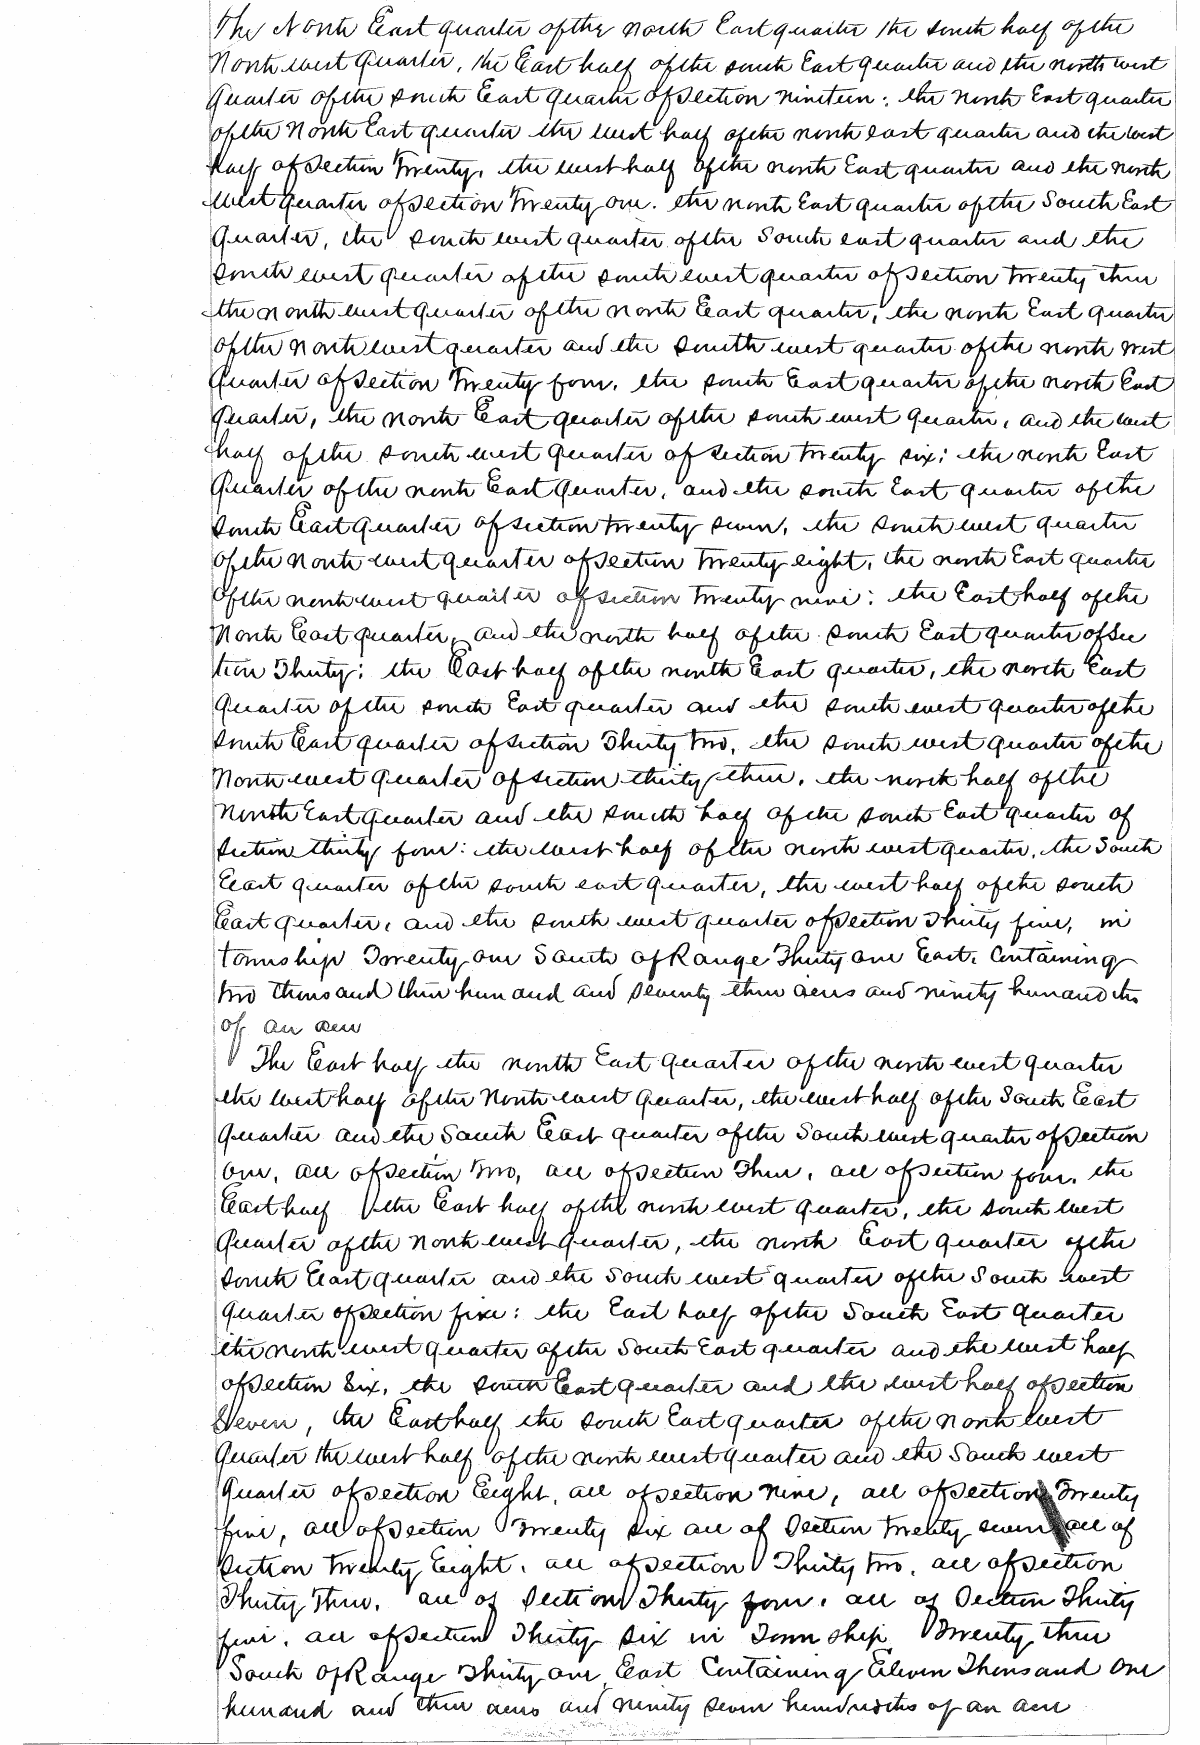 The North East quarter of the north East quarter the south half of the
North west quarter, the East half of the south East quarter and the north west
quarter of the south East quarter of Section nineteen; the north East quarter
of the North East quarter the west half of the north east quarter and the west
half of Section Twenty, the west half of the north East quarter and the north
west quarter of Section Twenty one. the north East quarter of the South East
quarter, the south west quarter of the South east quarter and the
south west quarter of the south west quarter of Section twenty three
the north west quarter of the north East quarter, the north East quarter
of the North west quarter and the south west quarter of the north west
quarter of Section Twenty four, the south East quarter of the north East
quarter, the north East quarter of the south west quarter, and the west
half of the south west quarter of section twenty six; the north East
quarter of the north East quarter, and the south East quarter of the
south East quarter of section twenty seven, the south west quarter
of the North west quarter of Section Twenty eight, the north East quarter
of the north west quarter of section twenty nine: the East half of the
North East quarter, and the north half of the south East quarter of Sec
tion Thirty; the East half of the north East quarter, the north East
quarter of the south East quarter and the south west quarter of the
south East quarter of section Thirty two, the south west quarter of the
North west quarter of section thirty three, the north half of the
North East quarter and the south half of the south East quarter of
section thirty four: the west half of the north west quarter, the South
East quarter of the south east quarter, the west half of the south
East quarter, and the south west quarter of Section Thirty five, in
township Twenty one South of Range Thirty one East. Containing
two thousand three hundred and seventy three acres and ninety hundredths
of an acre
The East half the north East quarter of the north west quarter
the west half of the North west quarter, the west half of the South East
quarter and the South East quarter of the South west quarter of Section
one, all of Section two, all of Section Three, all of Section four, the
East half the East half of the north west quarter, the south west
quarter of the North west quarter, the north East quarter of the
south East quarter and the South west quarter of the South west
quarter of Section five: the East half of the South East quarter
the north west quarter of the South East quarter and the west half
of Section Six, the south East quarter and the west half of Section
Seven, the East half the south East quarter of the north west
quarter the west half of the north west quarter and the South west
quarter of Section Eight, all of Section nine, all of Section Twenty
five, all of Section Twenty six all of Section Twenty seven all of
Section Twenty Eight, all of Section Thirty two, all of Section
Thirty Three, all of Section Thirty four, all of Section Thirty
five, all of Section Thirty six in Township Twenty three
South of Range Thirty one East Containing Eleven Thousand One
hundred and three acres and ninety seven hundredths of an acre